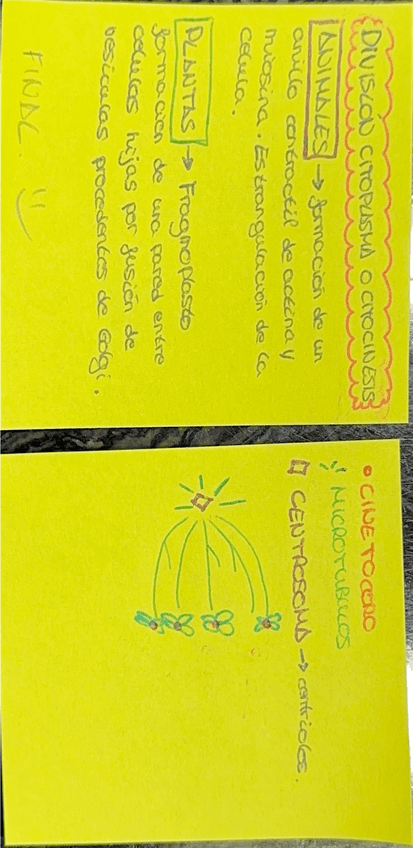 DIVISIÓN CITOPLASMA O CITOCINESIS
ANIMALES → formación de un
anillo contráctil de actina y
miosina. Estrangulación de la
célula.
PLANTAS → Fragmoplasto
formación de una pared entre
células hijas por fusión de
vesículas procedentes de Golgi.
FINAL. :)
• CINETOCORO
MICROTÚBULOS
CENTROSOMA → centriolos.